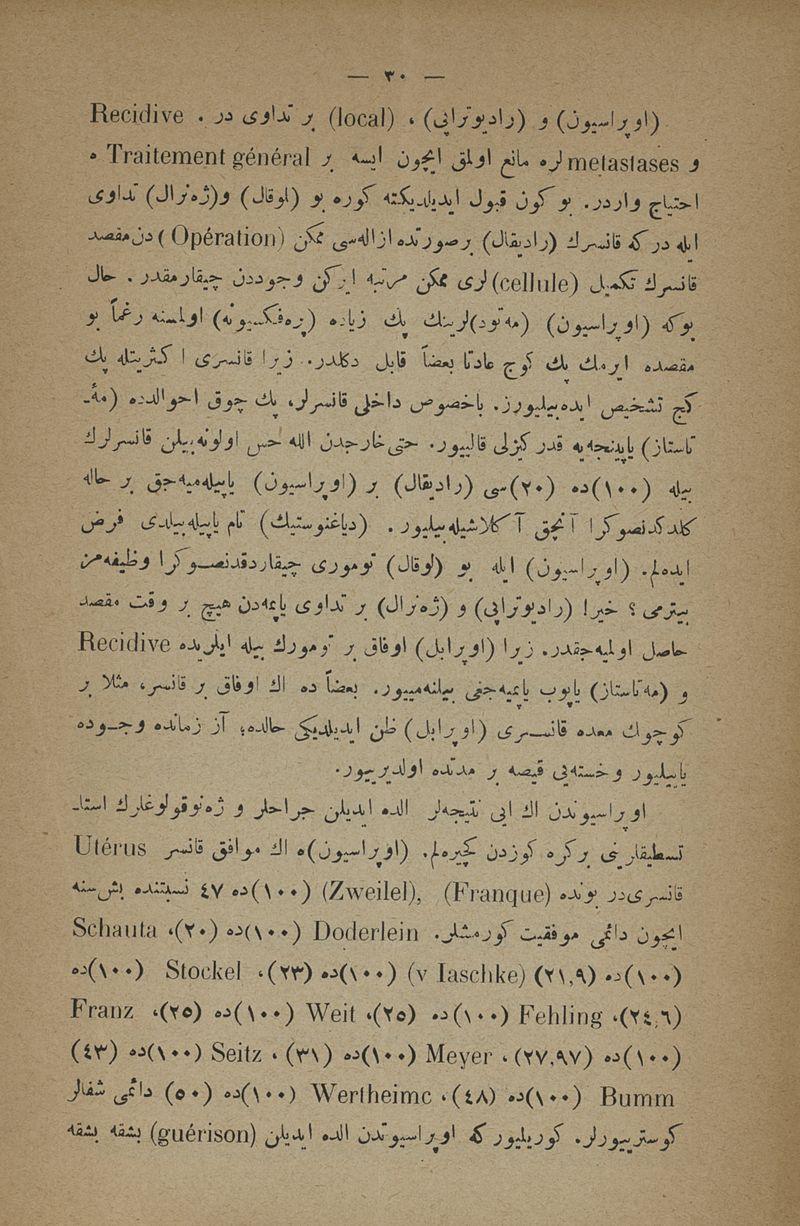 — ٣٠ —
(اوپراسیون) و (رادیوتراپی) ، (local) بر تداوی در . Recidive
و metastases لره مانع اولمق ایچون ایسه بر Traitement général ه
احتیاج واردر. بو کون قبول ایدیلدیکنه کوره بو (لوقال) و(ژه‌نرال) تداوی
ایله درکه قانسرك (رادیقال) برصورتده ازاله‌سی ممکن (Opération) دن مقصد
قانسرك تکمیل (cellule) لری ممکن مرتبه ایرکن وجوددن چیقارمقدر . حال
بوکه (اوپراسیون) (مه‌تود)لرینك پك زیاده (پرفکسیونه) اولمسنه رغماً بو
مقصده ایرمك پك کوج عادتا بعضاً قابل دکلدر. زیرا قانسری اکثریتله پك
کج تشخیص ایده‌بیلیورز. باخصوص داخلی قانسرلر، پك چوق احوالده (مه‌ـ
تاستاز) یاپنجه‌یه قدر کزلی قالییور. حتی خارجدن الله حس اولونه‌بیلن قانسرلرك
بیله (١٠٠)ده (٢٠)سی (رادیقال) بر (اوپراسیون) یاپیله‌میه‌جق بر حاله
کلدکدنصوکرا آنجق آکلاشیله‌بیلیور . (دیاغنوستیك) تام یاپیله‌بیلدی فرض
ایده‌لم. (اوپراسیون) ایله بو (لوقال) توموری چیقاردقدنصوکرا وظیفه‌من
بیترمی ؟ خیر! (رادیوتراپی) و (ژه‌نرال) بر تداوی یاپمه‌دن هیچ بر وقت مقصد
حاصل اولمیه‌جقدر. زیرا (اوپرابل) اوفاق بر تومورك بیله ایلریده Recidive
و (مه‌تاستاز) یاپوب یاپمیه‌جغی بیلنه‌مییور. بعضاً ده اك اوفاق بر قانسر، مثلا بر
کوچوك معده قانسری (اوپرابل) ظن ایدیلدیکی حالده، آز زمانده وجوده
یاییلیور و خسته‌یی قیصه بر مدتده اولدیرییور.
اوپراسیوندن اك ایی نتیجه‌لر الده ایدیلن جراحلر و ژه‌نوقولوغلرك استاـ
تسطیقلرینی برکره کوزدن کچیره‌لم. (اوپراسیون)ه اك موافق قانسر Utérus
قانسری‌در بونده (Franque) ,(Zweilel) (١٠٠)ده ٤٧ نسبتنده بش سنه
ایچون دائمی موفقیت کورمشلر. Doderlein (١٠٠)ده (٢٠)، Schauta
(١٠٠)ده (٢١,٩) (v Iaschke) (١٠٠)ده (٢٣)، Stockel (١٠٠)ده
(٢٤,٦)، Fehling (١٠٠)ده (٢٥)، Weit (١٠٠)ده (٢٥)، Franz
(١٠٠)ده (٢٧,٩٧) ، Meyer (١٠٠)ده (٣١) ، Seitz (١٠٠)ده (٤٣)
Bumm (١٠٠)ده (٤٨)، Wertheimc (١٠٠)ده (٥٠) دائمی شفالر
کوسترییورلر. کوریلیور که اوپراسیوندن الده ایدیلن (guérison) بشقه بشقه